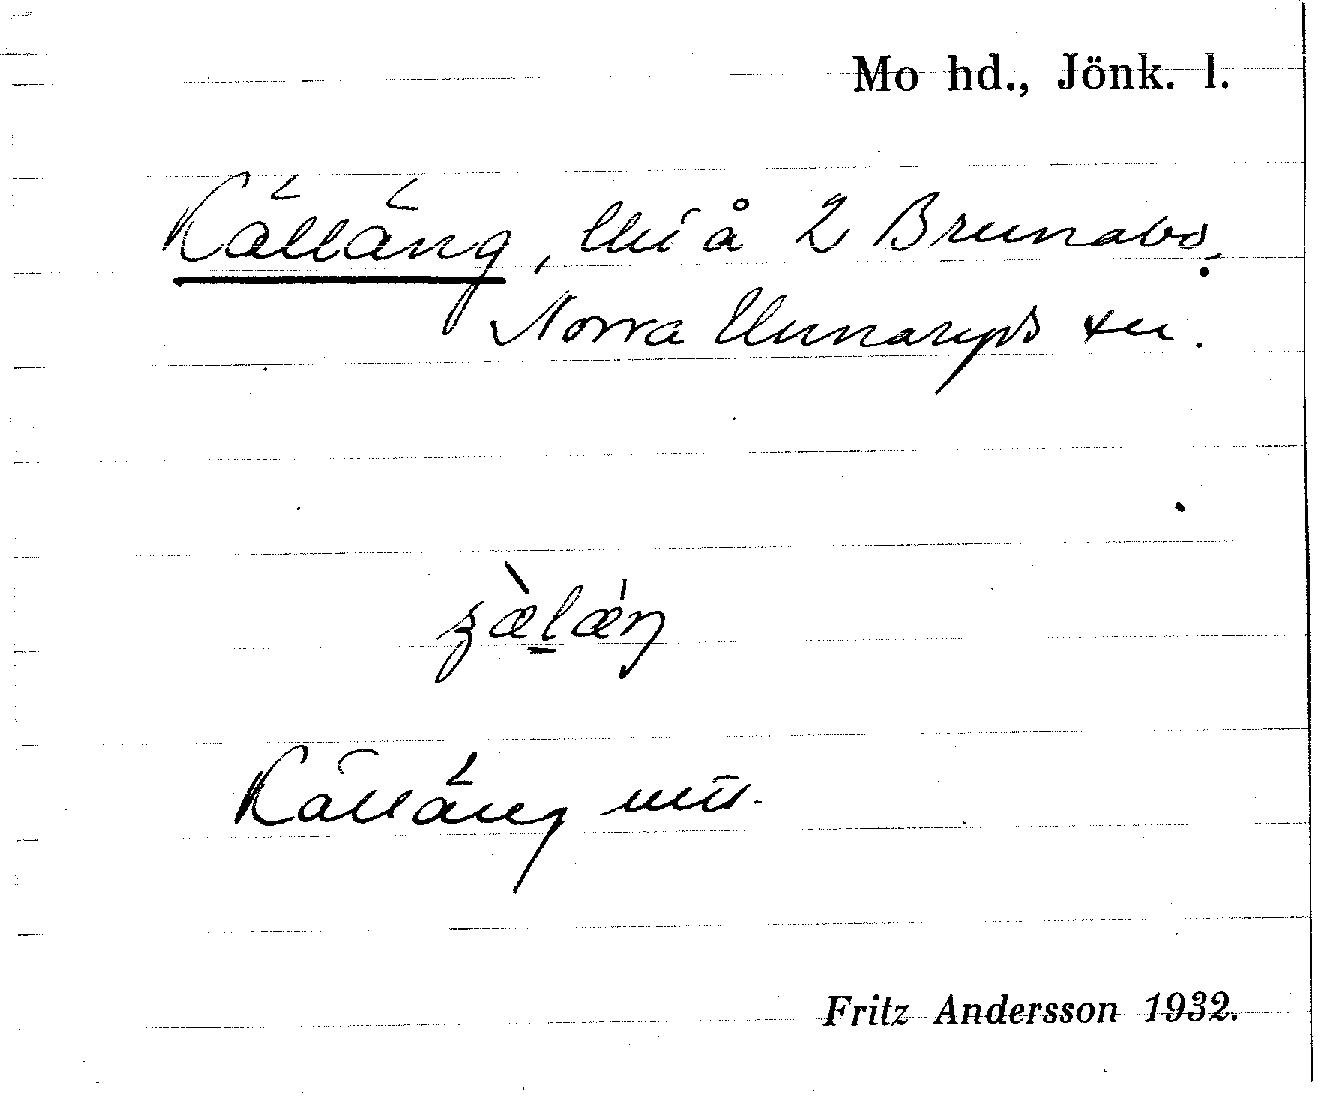 Mo hd., Jönk. l.
Källäng, å 2 Brunabo,
Norra Unnaryds sn.
Källäng
Fritz Andersson 1932.